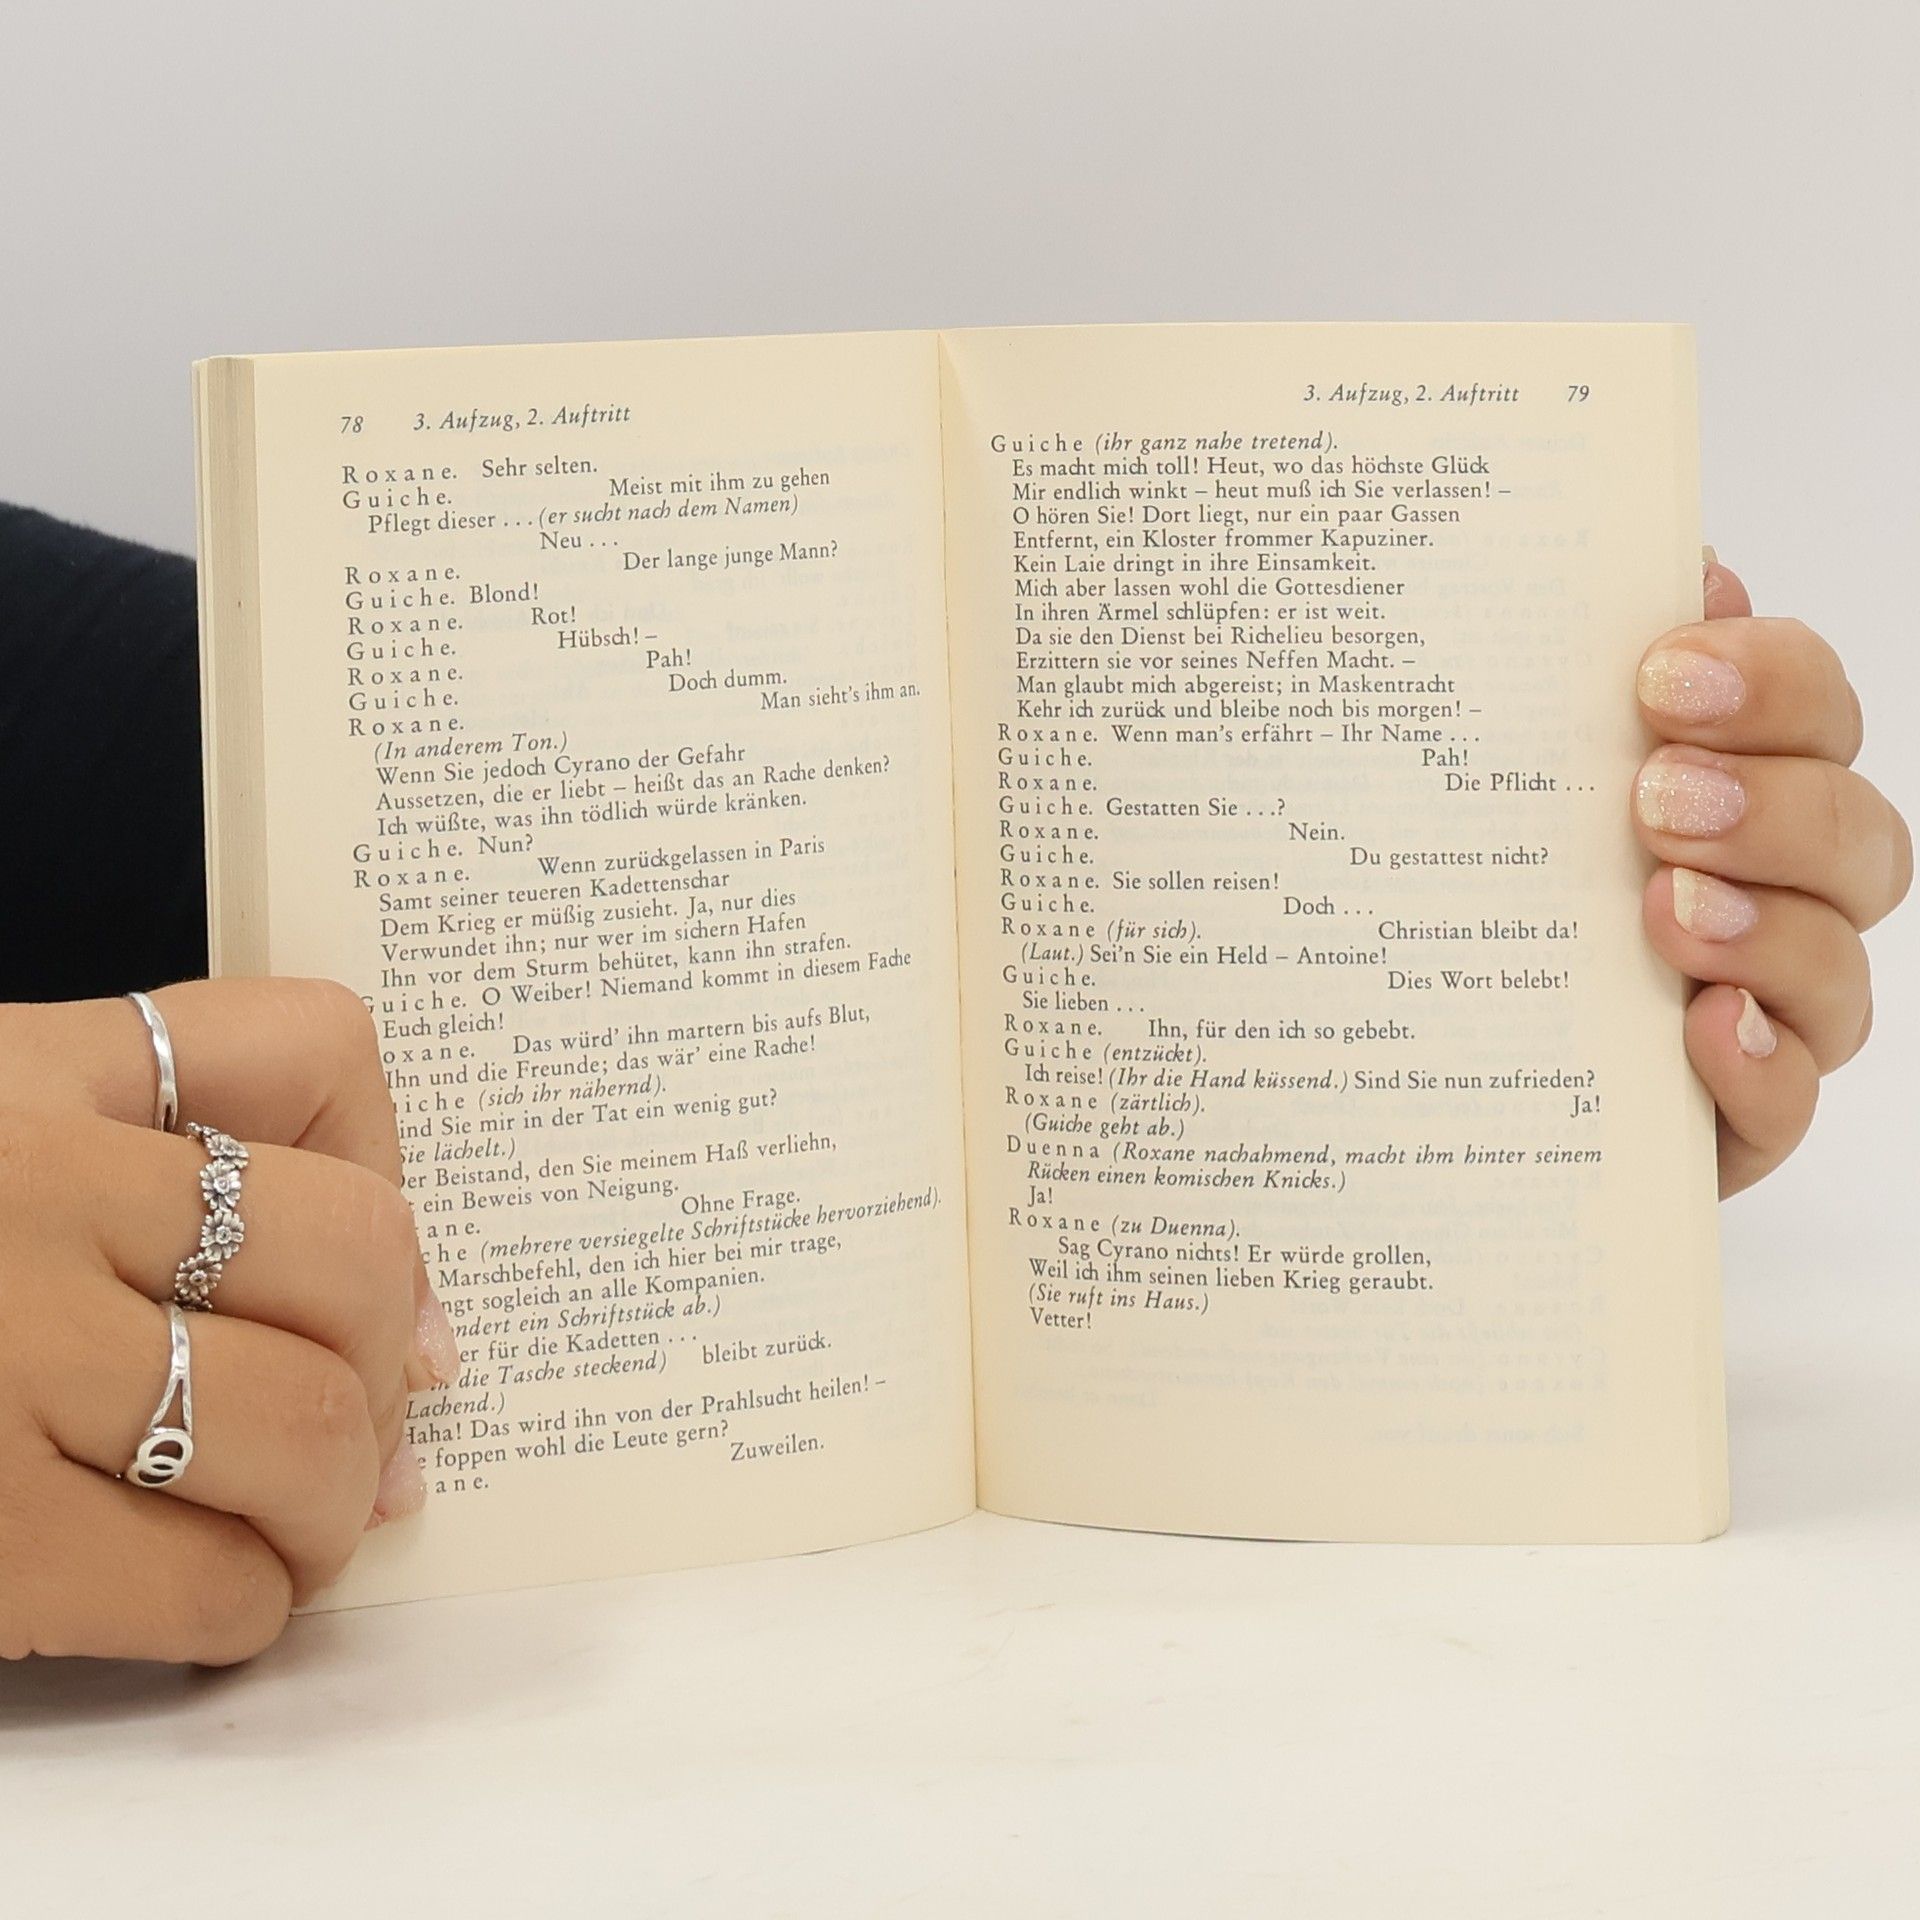 78 3. Aufzug, 2. Auftritt
Roxane. Sehr selten.
Guiche. Meist mit ihm zu gehen
Pflegt dieser . . . (er sucht nach dem Namen)
Neu . . .
Roxane. Der lange junge Mann?
Guiche. Blond!
Roxane. Rot!
Guiche. Hübsch! –
Roxane. Pah!
Guiche. Doch dumm.
Roxane. Man sieht's ihm an.
(In anderem Ton.)
Wenn Sie jedoch Cyrano der Gefahr
Aussetzen, die er liebt – heißt das an Rache denken?
Ich wüßte, was ihn tödlich würde kränken.
Guiche. Nun?
Roxane. Wenn zurückgelassen in Paris
Samt seiner teueren Kadettenschar
Dem Krieg er müßig zusieht. Ja, nur dies
Verwundet ihn; nur wer im sichern Hafen
Ihn vor dem Sturm behütet, kann ihn strafen.
Guiche. O Weiber! Niemand kommt in diesem Fache
Euch gleich!
oxane. Das würd' ihn martern bis aufs Blut,
Ihn und die Freunde; das wär' eine Rache!
iche (sich ihr nähernd).
ind Sie mir in der Tat ein wenig gut?
Sie lächelt.)
er Beistand, den Sie meinem Haß verliehn,
t ein Beweis von Neigung.
ane. Ohne Frage.
che (mehrere versiegelte Schriftstücke hervorziehend).
Marschbefehl, den ich hier bei mir trage,
ngt sogleich an alle Kompanien.
ndert ein Schriftstück ab.)
er für die Kadetten . . .
in die Tasche steckend) bleibt zurück.
Lachend.)
Haha! Das wird ihn von der Prahlsucht heilen! –
e foppen wohl die Leute gern?
ane. Zuweilen.
3. Aufzug, 2. Auftritt 79
Guiche (ihr ganz nahe tretend).
Es macht mich toll! Heut, wo das höchste Glück
Mir endlich winkt – heut muß ich Sie verlassen! –
O hören Sie! Dort liegt, nur ein paar Gassen
Entfernt, ein Kloster frommer Kapuziner.
Kein Laie dringt in ihre Einsamkeit.
Mich aber lassen wohl die Gottesdiener
In ihren Ärmel schlüpfen: er ist weit.
Da sie den Dienst bei Richelieu besorgen,
Erzittern sie vor seines Neffen Macht. –
Man glaubt mich abgereist; in Maskentracht
Kehr ich zurück und bleibe noch bis morgen! –
Roxane. Wenn man's erfährt – Ihr Name . . .
Guiche. Pah!
Roxane. Die Pflicht . . .
Guiche. Gestatten Sie . . .?
Roxane. Nein.
Guiche. Du gestattest nicht?
Roxane. Sie sollen reisen!
Guiche. Doch . . .
Roxane (für sich). Christian bleibt da!
(Laut.) Sei'n Sie ein Held – Antoine!
Guiche. Dies Wort belebt!
Sie lieben . . .
Roxane. Ihn, für den ich so gebebt.
Guiche (entzückt).
Ich reise! (Ihr die Hand küssend.) Sind Sie nun zufrieden?
Roxane (zärtlich). Ja!
(Guiche geht ab.)
Duenna (Roxane nachahmend, macht ihm hinter seinem
Rücken einen komischen Knicks.)
Ja!
Roxane (zu Duenna).
Sag Cyrano nichts! Er würde grollen,
Weil ich ihm seinen lieben Krieg geraubt.
(Sie ruft ins Haus.)
Vetter!